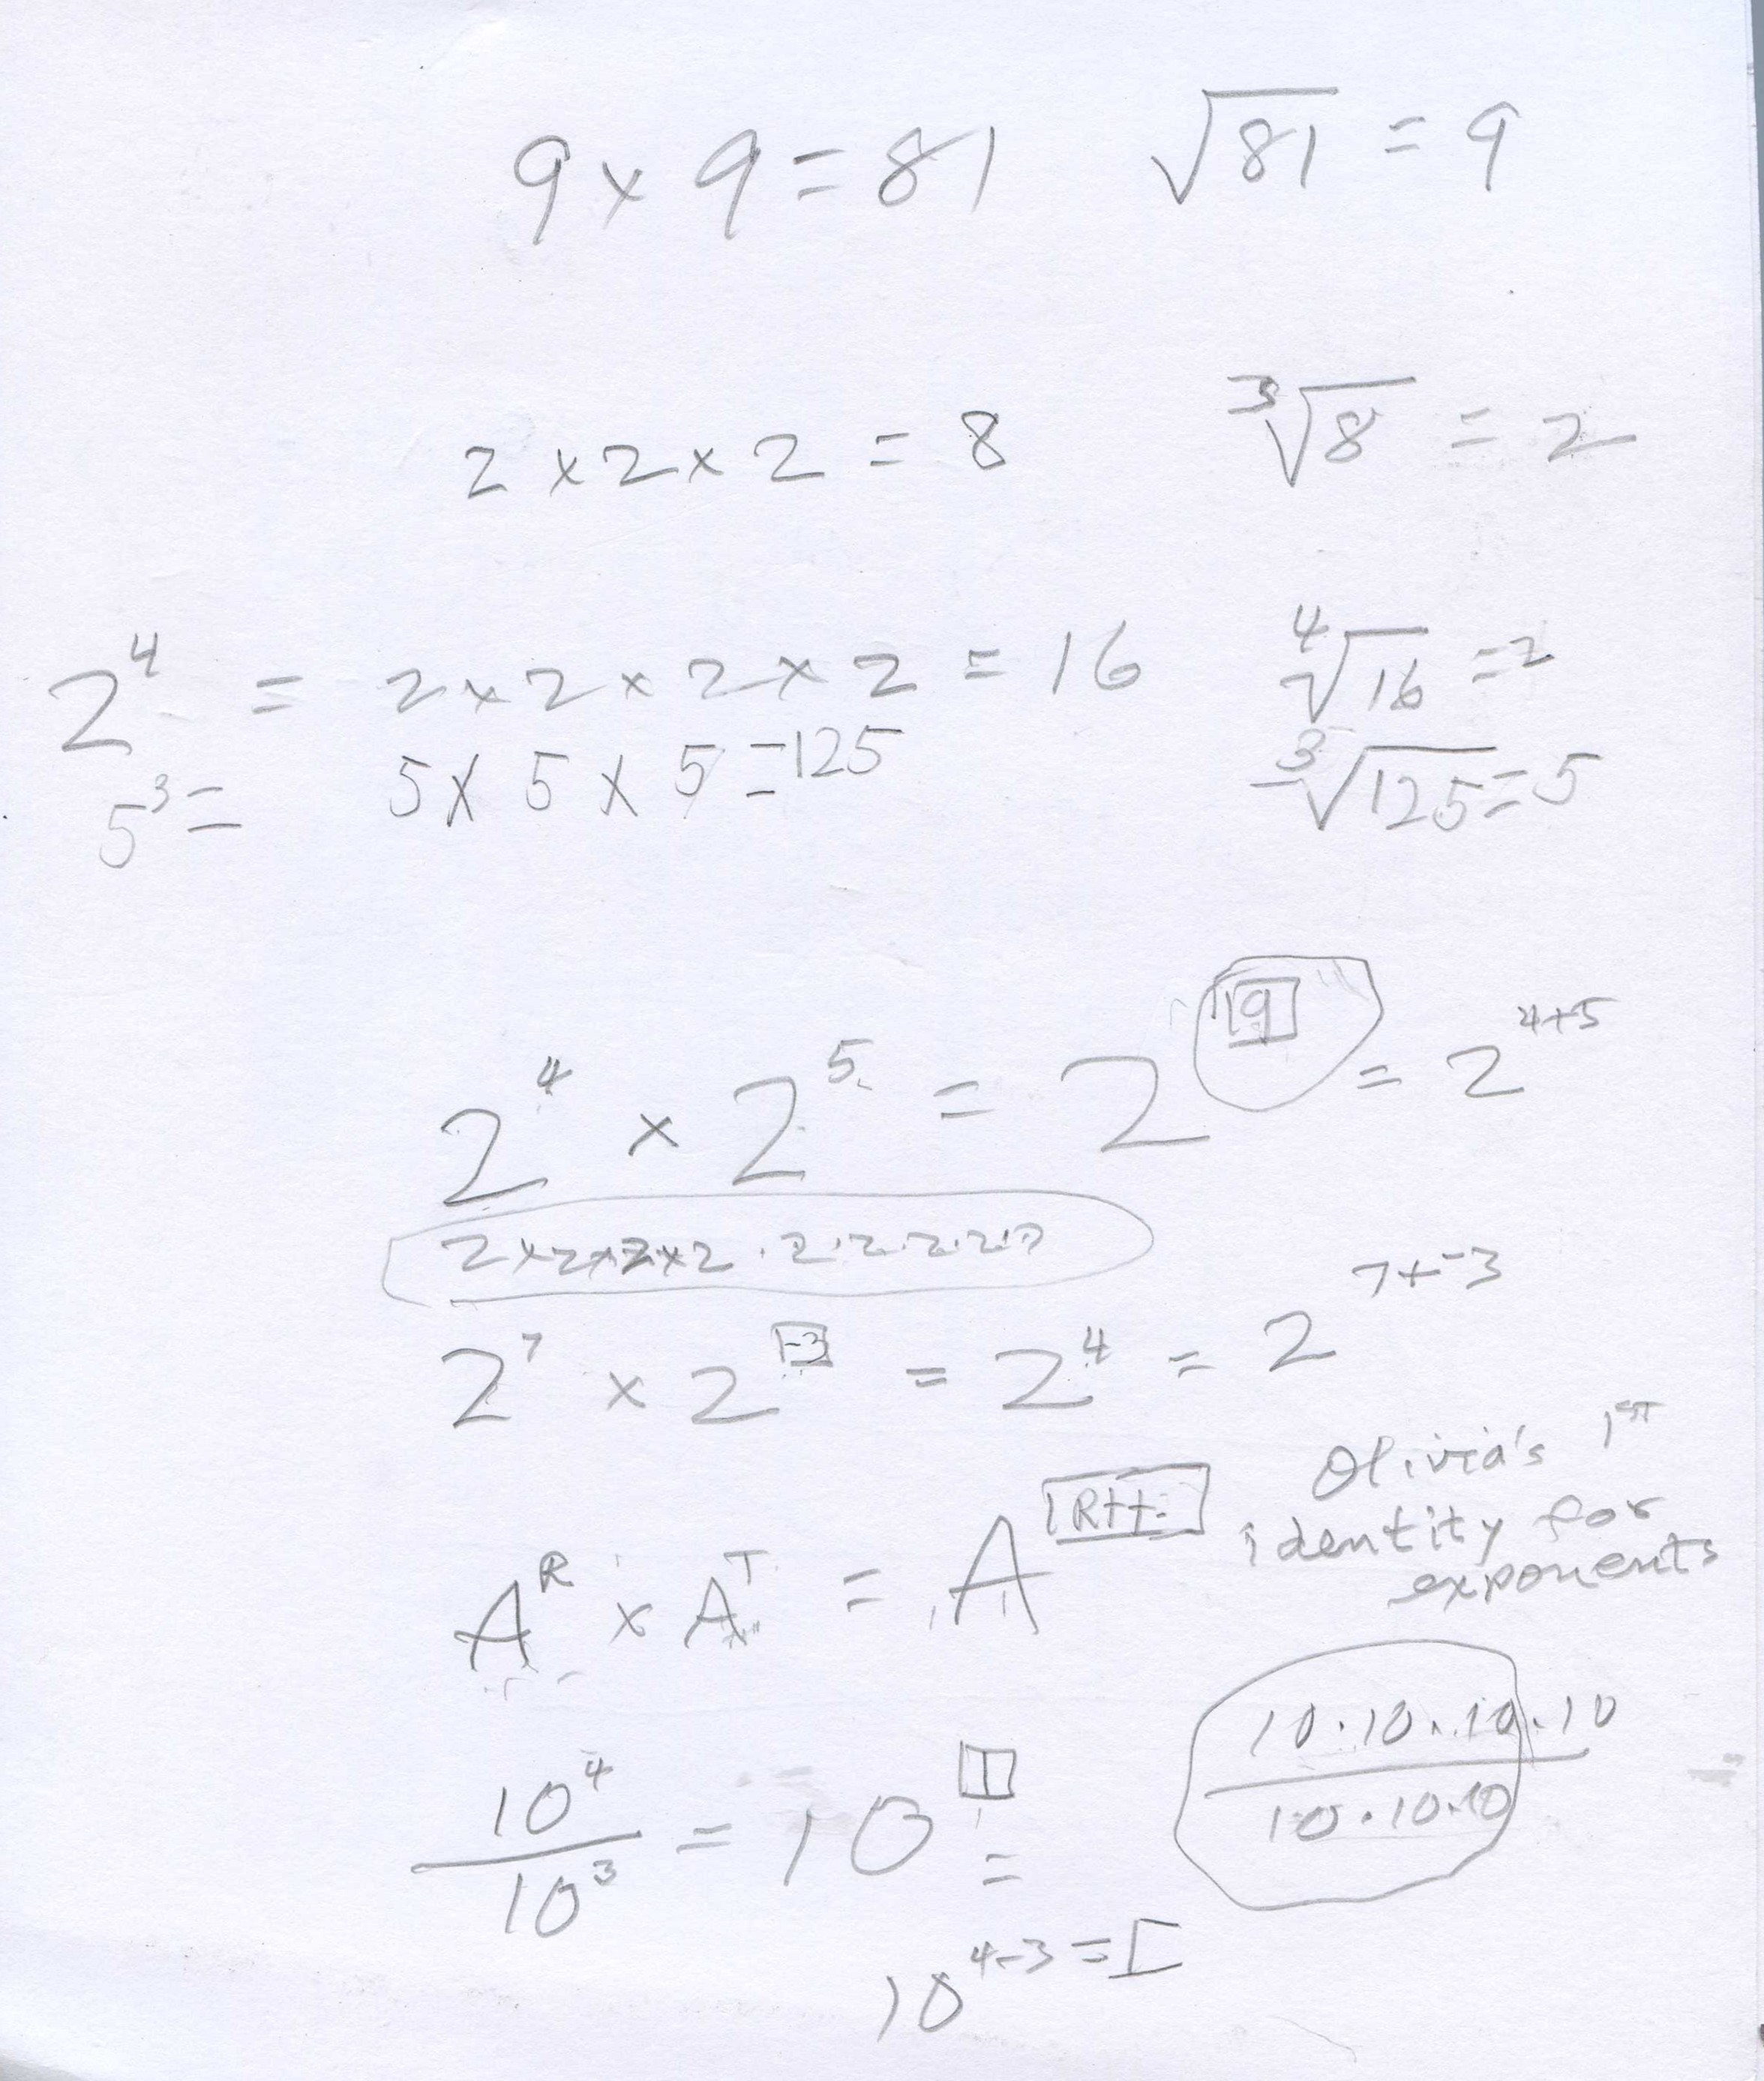 9 × 9 = 81 √81 = 9
2 × 2 × 2 = 8 ³√8 = 2
2⁴ = 2 × 2 × 2 × 2 = 16 ⁴√16 = 2
5³ = 5 × 5 × 5 = 125 ³√125 = 5
2⁴ × 2⁵ = 2⁹ = 2⁴⁺⁵
2×2×2×2·2·2·2·2·2
2⁷ × 2⁻³ = 2⁴ = 2^(7+-3)
Olivia's 1ST
A^R × A^T = A^(R+T) identity for
exponents
10⁴/10³ = 10¹ = 10·10·10·10/10·10·10
10⁴⁻³ = 1